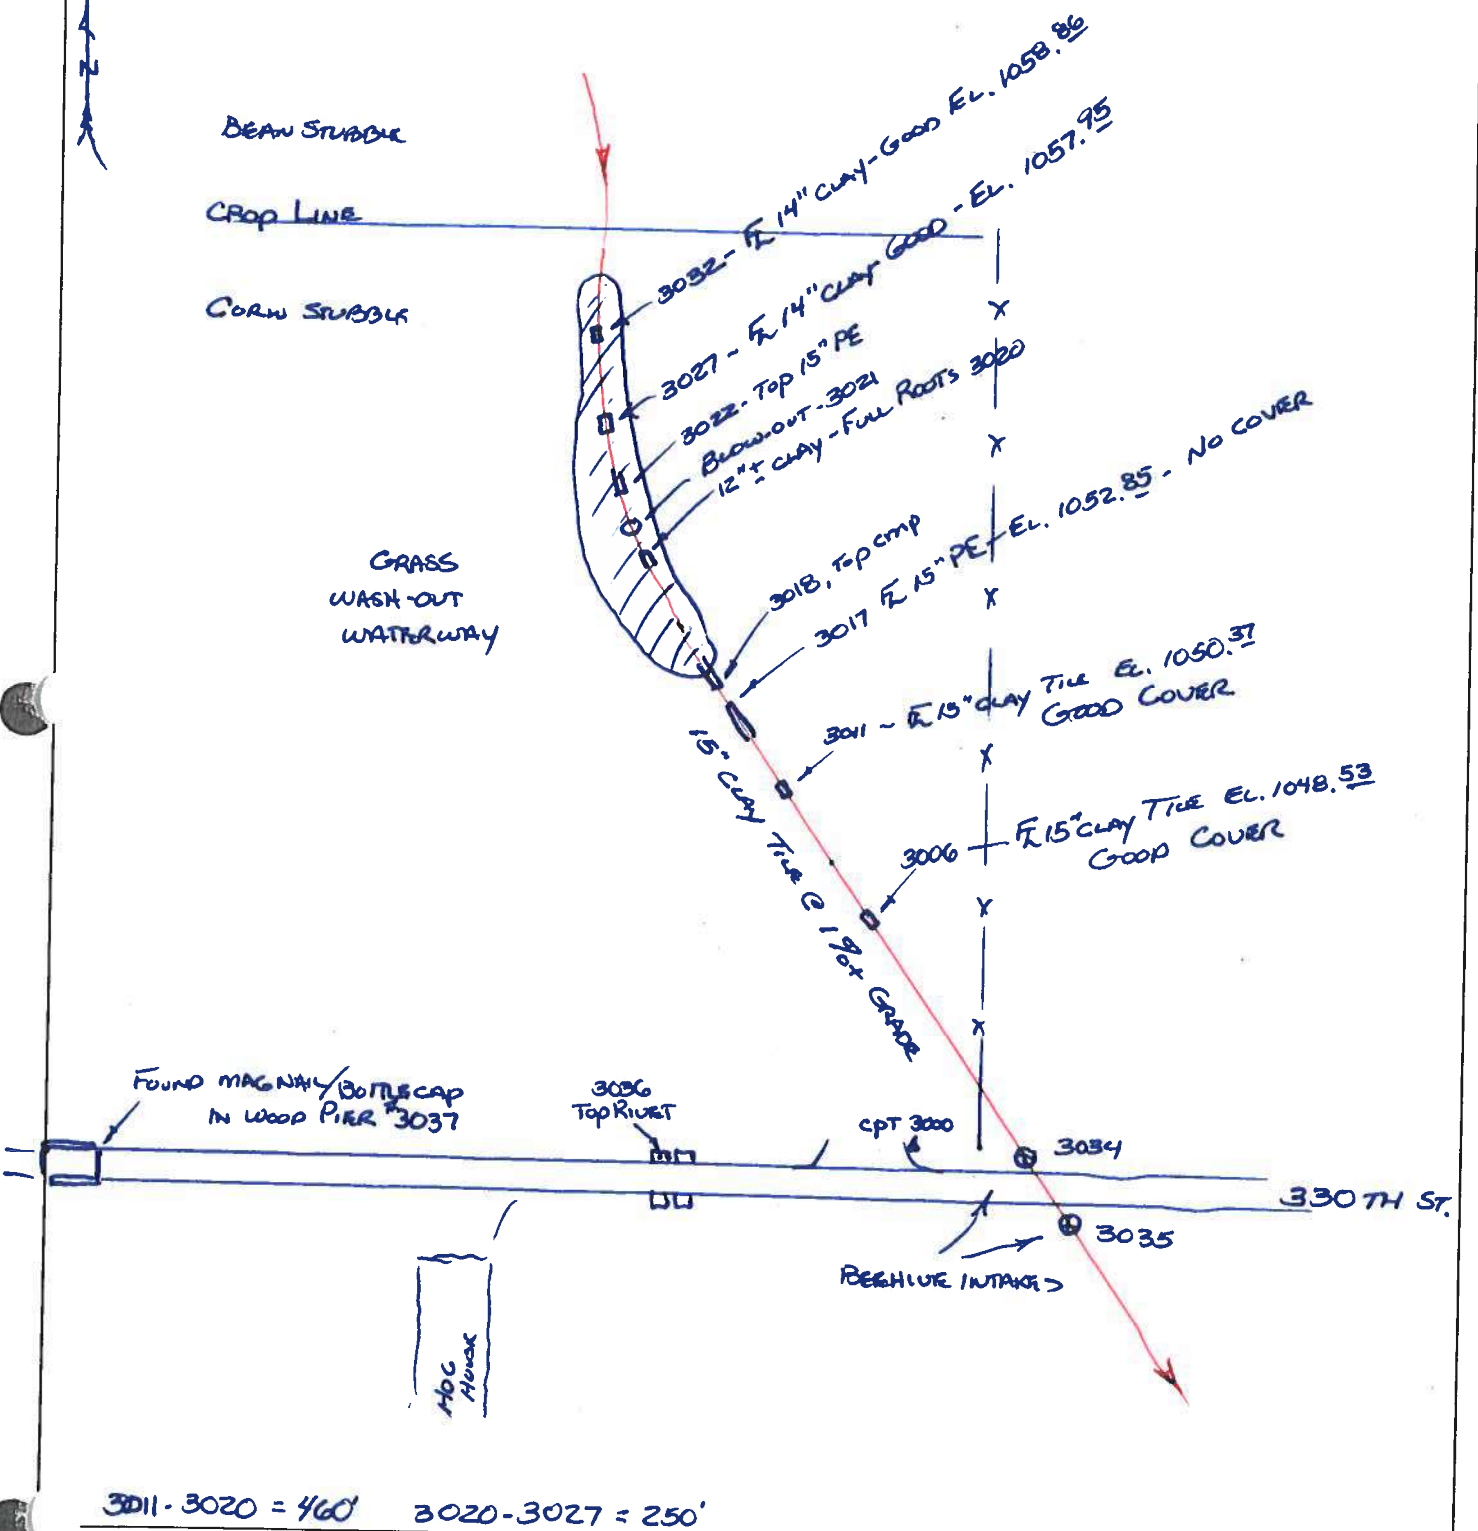 N
BEAN STUBBLE
CROP LINE
CORN STUBBLE
3032 - FL 14" CLAY - GOOD EL. 1058.86
3027 - FL 14" CLAY GOOD - EL. 1057.95
3022 - TOP 15" PE
BLOW-OUT - 3021
12"± CLAY - FULL ROOTS 3020
GRASS
WASH-OUT
WATERWAY
3018, TOP CMP
3017 FL 15" PE - EL. 1052.85 - NO COVER
3011 - FL 15" CLAY TILE EL. 1050.37
GOOD COVER
3006 - FL 15" CLAY TILE EL. 1048.53
GOOD COVER
15" CLAY TILE @ 1%± GRADE
X
X
X
X
X
X
X
FOUND MAGNAIL/BOTTLECAP
IN WOOD PIER #3037
3036
TOP RIVET
CPT 3000
3034
330TH ST.
3035
BEEHIVE INTAKES
HOG
HOUSE
3011 - 3020 = 460' 3020 - 3027 = 250'